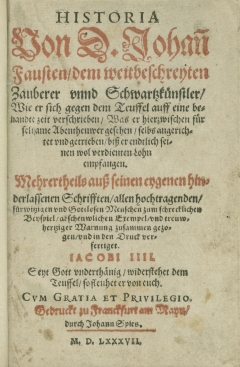 HISTORIA
Von D. Johañ
Fausten/dem weitbeschreyten
Zauberer vnnd Schwartzkünstler/
Wie er sich gegen dem Teuffel auff eine be-
nandte zeit verschrieben/ Was er hierzwischen für
seltzame Abentheuwer gesehen/ selbs angerich-
tet vnd getrieben/ biß er endtlich sei-
nen wol verdienten Lohn
empfangen.
Mehrertheils auß seinen eygenen hin-
derlassenen Schrifften/allen hochtragenden/
fürwitzigen vnd Gottlosen Menschen zum schrecklichen
Beyspiel/abscheuwlichen Exempel/vnd treuw-
hertziger Warnung zusammen gezo-
gen/vnd in den Druck ver-
fertiget.
IACOBI IIII.
Seyt Gott vnderthänig/ widerstehet dem
Teuffel/ so fleuhet er von euch.
CVM GRATIA ET PRIVILEGIO.
Gedruckt zu Franckfurt am Mayn/
durch Johann Spies.
M. D. LXXXVII.